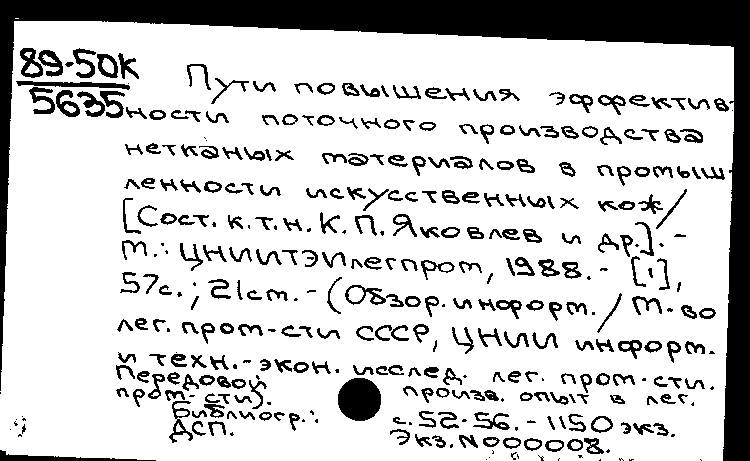 89-50к
5635
Пути повышения эффектив-
ности поточного производства
нетканых материалов в промыш-
ленности искусственных кож /
[Сост. к.т.н. К.П. Яковлев и др.]. -
М.: ЦНИИТЭИлегпром, 1988. - [1],
57с.; 21см. - (Обзор. информ. / М-во
лег. пром-сти СССР, ЦНИИ информ.
и техн.-экон. исслед. лег. пром-сти.
Передовой произв. опыт в лег.
пром-сти).
Библиогр.: с. 52-56. - 1150 экз.
ДСП. Экз. N000008.